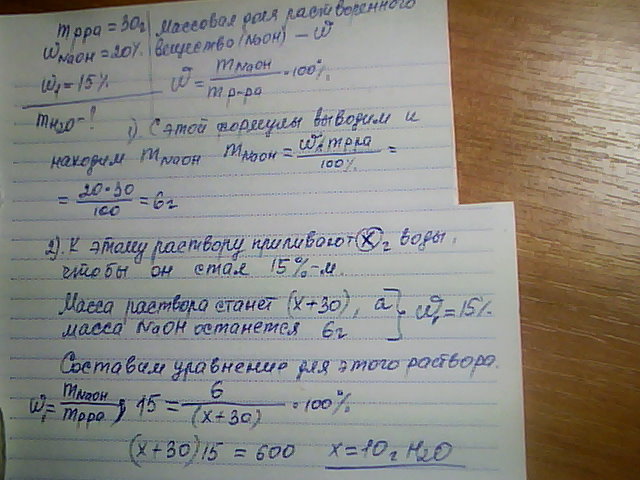 mр-ра = 30г
Массовая доля растворенного
WNaOH = 20%
вещество (NaOH) – W
W₁ = 15%
W = mNaOH / mр-ра · 100%
mH2O – !
1). С этой формулы выводим и
находим mNaOH mNaOH = W · mр-ра / 100% =
= 20 · 30 / 100 = 6г
2). К этому раствору приливают (x) г воды,
чтобы он стал 15%-м.
Масса раствора станет (x+30), а
масса NaOH останется 6г
W₁ = 15%
Составим уравнение для этого раствора.
W₁ = mNaOH / mр-ра ; 15 = 6 / (x+30) · 100%
(x+30) 15 = 600 x = 10г H2O